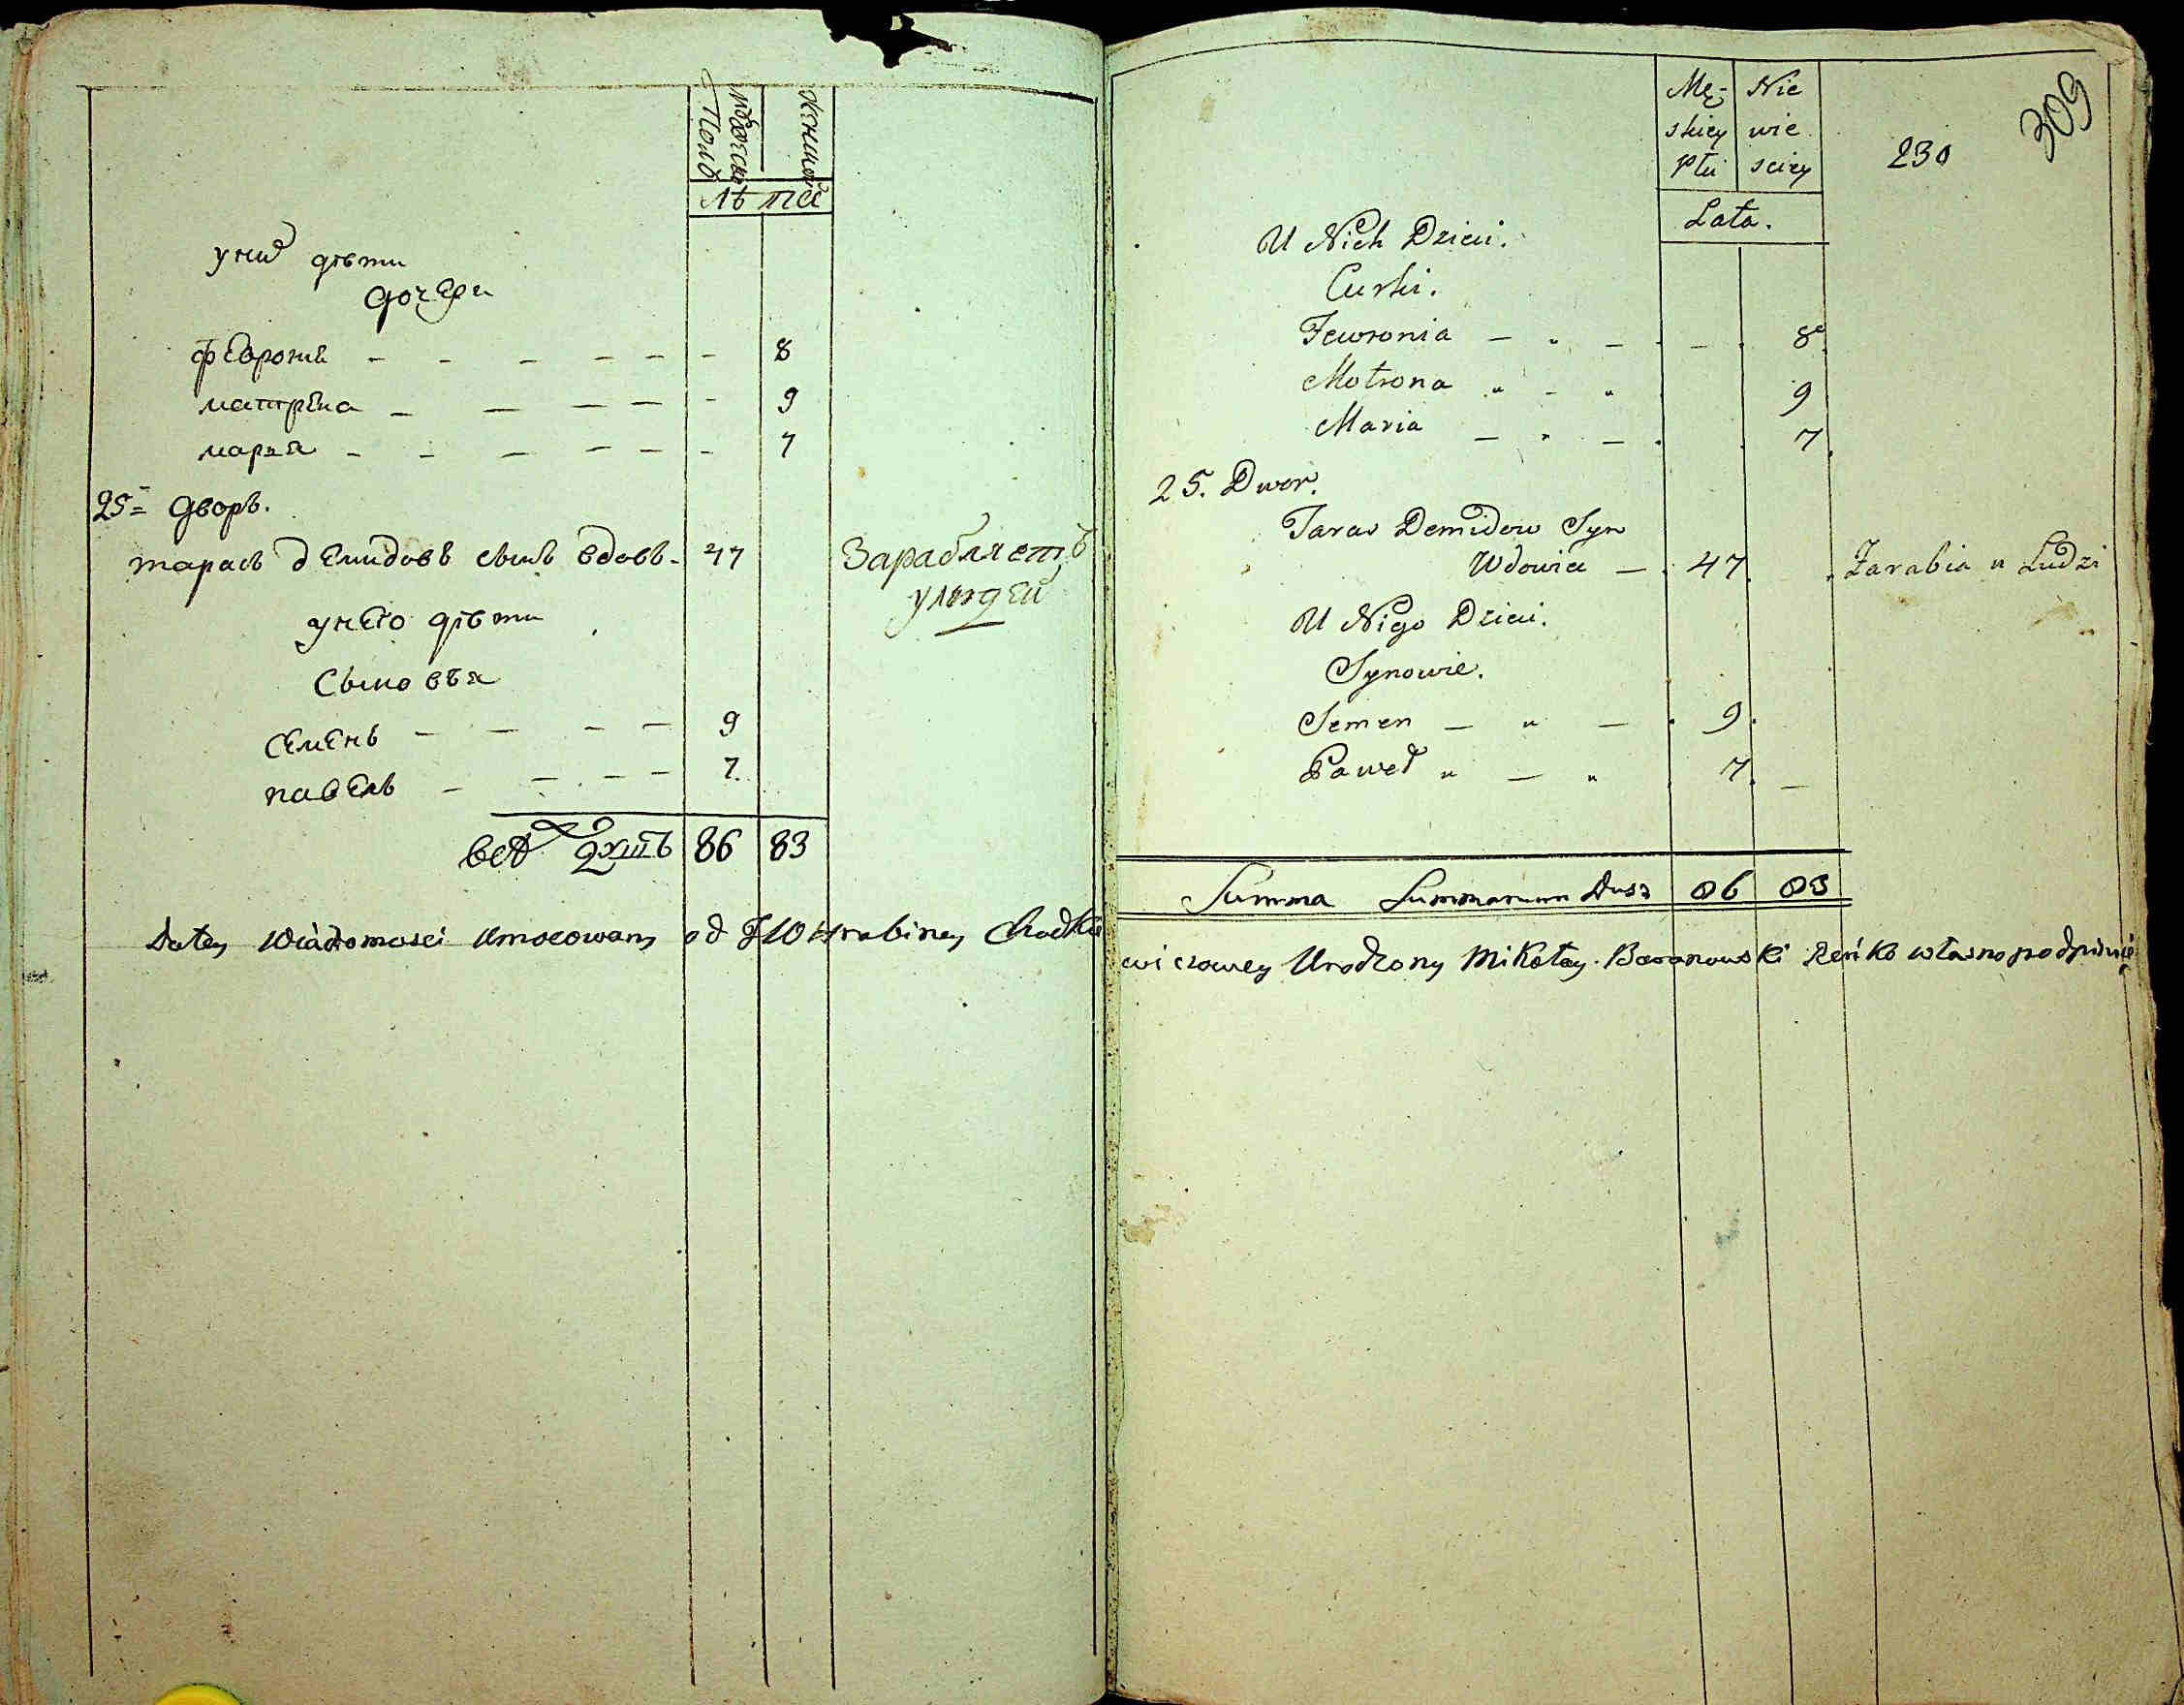 мужеска
Полꙋ
женска
лѣта
у них дѣти
дочери
феврония — — — — — — 8
матрена — — — — — 9
марья — — — — — — 7
25= дворъ.
тарасъ демидовъ сынъ вдовъ - 47
Зарабляетъ
у людей
у него дѣти
Сыновья
семенъ — — — — 9
павелъ — — — — 7.
86 83
Do tey Wiadomosci Umocowany od JW Hrabiney Chodkie
Mę- Nie
skiey wie
płci sciey
230
309
Lata.
U Nich Dzieci.
Curki.
Fewronia — „ — — 8
Motrona „ - „ 9
Maria — „ — 7
25. Dwor.
Taras Demidow Syn
Wdowiec — 47 Zarabia u Ludzi
U Nigo Dzieci.
Synowie.
Semen — „ — 9.
Paweł „ — „ 7. —
Summa Summarum Dusz 86 83
wiczowey Urodzony Mikołay Baranowski Ręńką własną podpisuię